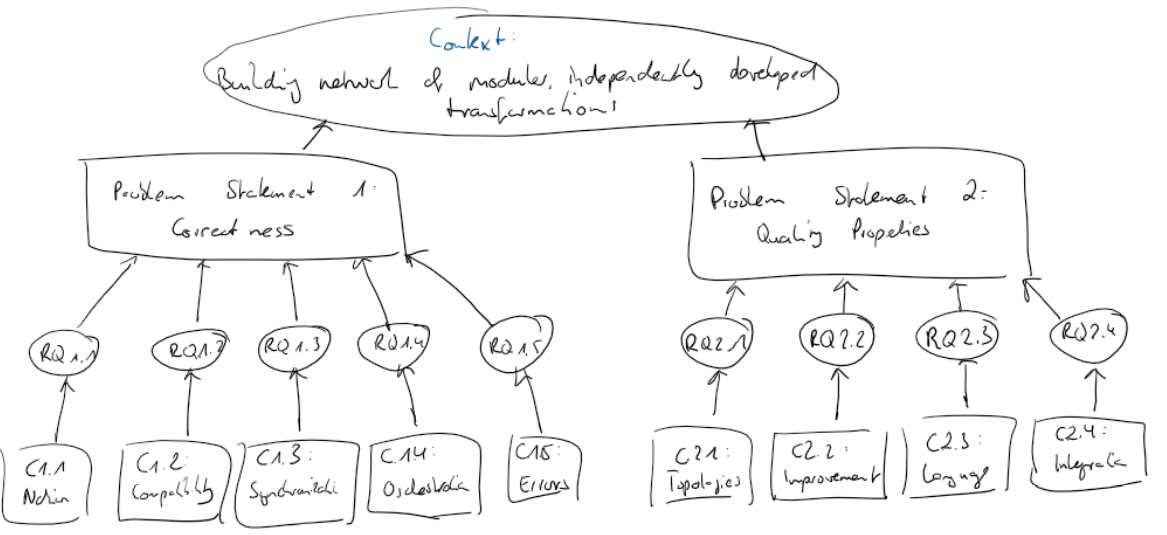 Context:
Building network of modular, independently developed
transformations
Problem Statement 1:
Correctness
Problem Statement 2:
Quality Properties
RQ1.1
RQ1.2
RQ1.3
RQ1.4
RQ1.5
RQ2.1
RQ2.2
RQ2.3
RQ2.4
C1.1
Notion
C1.2:
Compatibility
C1.3:
Synchronization
C.14:
Orchestration
C15:
Errors
C21:
Topologies
C2.2:
Improvement
C2.3:
Language
C2.4:
Integration